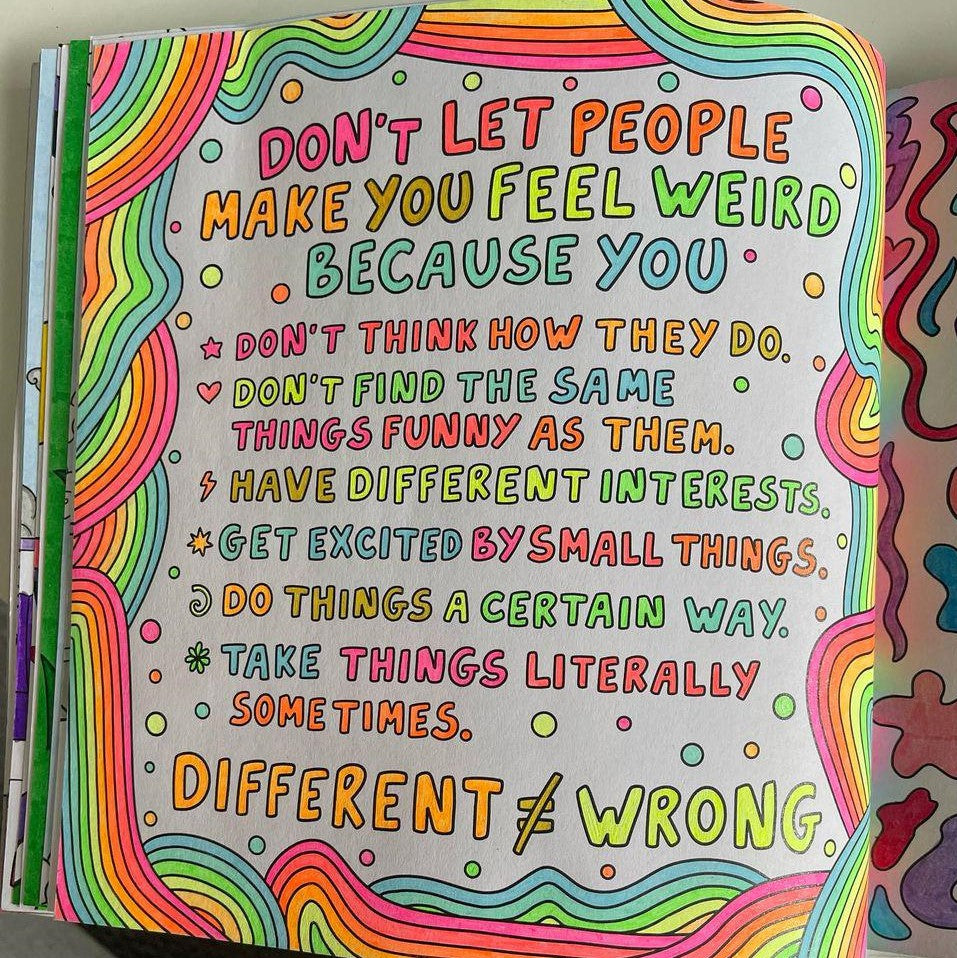 DON'T LET PEOPLE
MAKE YOU FEEL WEIRD
BECAUSE YOU
DON'T THINK HOW THEY DO.
DON'T FIND THE SAME
THINGS FUNNY AS THEM.
HAVE DIFFERENT INTERESTS.
GET EXCITED BY SMALL THINGS.
DO THINGS A CERTAIN WAY.
TAKE THINGS LITERALLY
SOMETIMES.
DIFFERENT ≠ WRONG